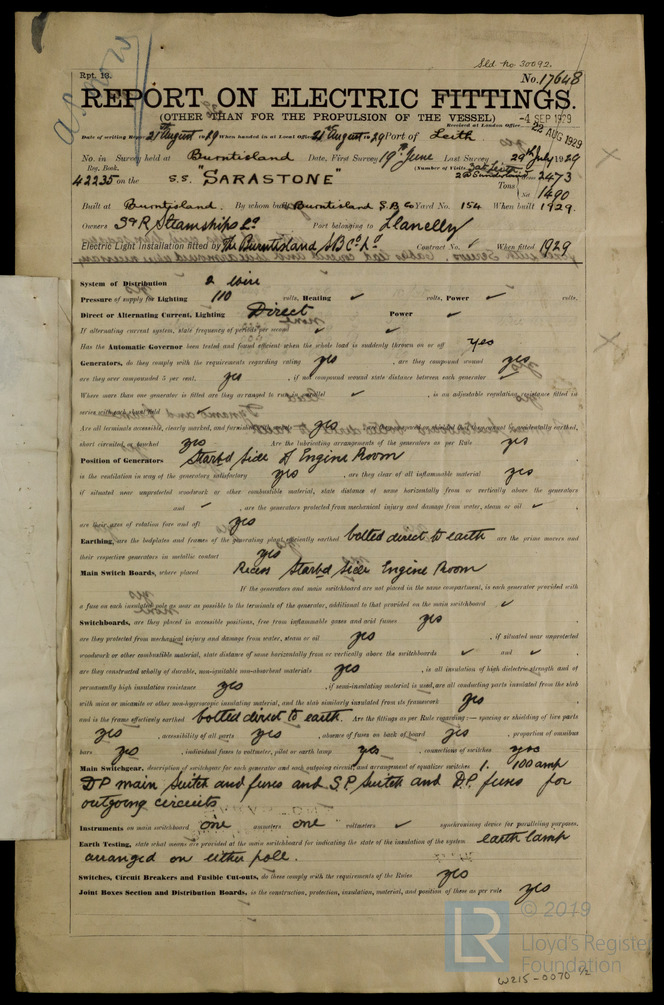 Sld. no 30092.
Rpt. 13.
No. 17648
REPORT ON ELECTRIC FITTINGS.
(OTHER THAN FOR THE PROPULSION OF THE VESSEL)
-4 SEP 1929
Received at London Office
22 AUG 1929
Date of writing Report 21st August 1929 When handed in at Local Office 21st August 1929 Port of Leith
No. in Survey held at Burntisland Date, First Survey 19th June Last Survey 29th July 1929
Reg. Book. (Number of Visits 3 at Leith
42235 on the S.S. "SARASTONE" 2 @ Sunderland
Tons 2473
1490
Built at Burntisland. By whom built Burntisland S.B Co Yard No. 154 When built 1929.
Owners S & R Steamships Ld Port belonging to Llanelly
Electric Light Installation fitted by The Burntisland S.B Co Ld Contract No. ✓ When fitted 1929
System of Distribution 2 Wire
Pressure of supply for Lighting 110 volts, Heating ✓ volts, Power ✓ volts.
Direct or Alternating Current, Lighting Direct Power ✓
If alternating current system, state frequency of periods per second ✓ ✓
Has the Automatic Governor been tested and found efficient when the whole load is suddenly thrown on or off yes
Generators, do they comply with the requirements regarding rating yes, are they compound wound yes
are they over compounded 5 per cent. yes, if not compound wound state distance between each generator ✓
Where more than one generator is fitted are they arranged to run in parallel ✓, is an adjustable regulating resistance fitted in
series with each shunt field ✓
Are all terminals accessible, clearly marked, and furnished yes earthed,
short circuited, or touched yes Are the lubricating arrangements of the generators as per Rule yes
Position of Generators Starbd Side of Engine Room
is the ventilation in way of the generators satisfactory yes, are they clear of all inflammable material yes
if situated near unprotected woodwork or other combustible material, state distance of same horizontally from or vertically above the generators
and ✓, are the generators protected from mechanical injury and damage from water, steam or oil ✓
are their axes of rotation fore and aft yes
Earthing, are the bedplates and frames of the generating plant efficiently earthed bolted direct to earth are the prime movers and
their respective generators in metallic contact yes
Main Switch Boards, where placed Recess Starbd Side Engine Room
If the generators and main switchboard are not placed in the same compartment, is each generator provided with
a fuse on each insulated pole as near as possible to the terminals of the generator, additional to that provided on the main switchboard ✓
Switchboards, are they placed in accessible positions, free from inflammable gases and acid fumes yes
are they protected from mechanical injury and damage from water, steam or oil yes, if situated near unprotected
woodwork or other combustible material, state distance of same horizontally from or vertically above the switchboards ✓ and ✓
are they constructed wholly of durable, non-ignitable non-absorbent materials yes, is all insulation of high dielectric strength and of
permanently high insulation resistance yes, if semi-insulating material is used, are all conducting parts insulated from the slab
with mica or micanite or other non-hygroscopic insulating material, and the slab similarly insulated from its framework yes
and is the frame effectively earthed bolted direct to earth. Are the fittings as per Rule regarding:— spacing or shielding of live parts
yes, accessibility of all parts yes, absence of fuses on back of board yes, proportion of omnibus
bars yes, individual fuses to voltmeter, pilot or earth lamp yes, connections of switches yes
Main Switchgear, description of switchgear for each generator and each outgoing circuit, and arrangement of equalizer switches 1. 100 amp
DP main Switch and fuses and S.P Switch and D.P. fuses for
outgoing circuits
Instruments on main switchboard one ammeters one voltmeters ✓ synchronising device for paralleling purposes.
Earth Testing, state what means are provided at the main switchboard for indicating the state of the insulation of the system earth lamp
arranged on either pole.
Switches, Circuit Breakers and Fusible Cut-outs, do these comply with the requirements of the Rules yes
Joint Boxes Section and Distribution Boards, is the construction, protection, insulation, material, and position of these as per rule yes
LR
© 2019
Lloyd's Register
Foundation
W215-0070 1/2